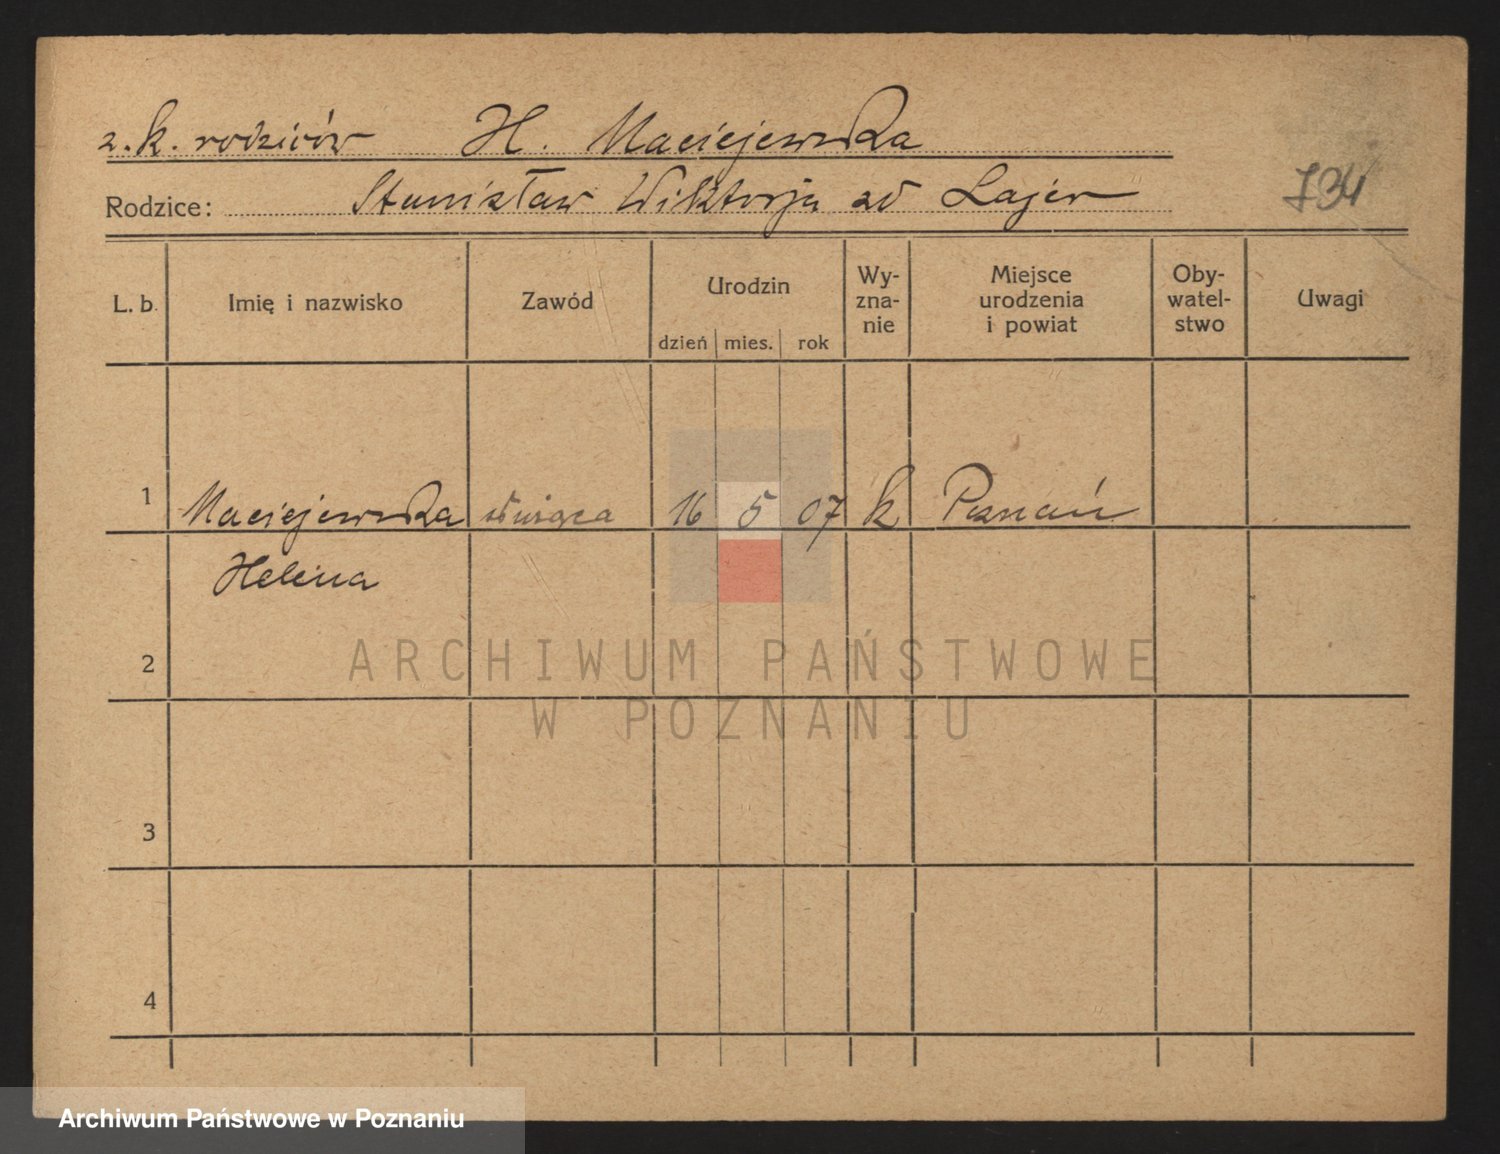 z. k. rodziców H. Maciejewska
Rodzice: Stanisław Wiktorja zd Lajer
734
L. b. Imię i nazwisko Zawód Urodzin Wy-zna-nie Miejsce urodzenia i powiat Oby-watel-stwo Uwagi
dzień mies. rok
1 Maciejewska służąca 16 5 07 k Poznań
Helena
2
ARCHIWUM PAŃSTWOWE
W POZNANIU
3
4
Archiwum Państwowe w Poznaniu